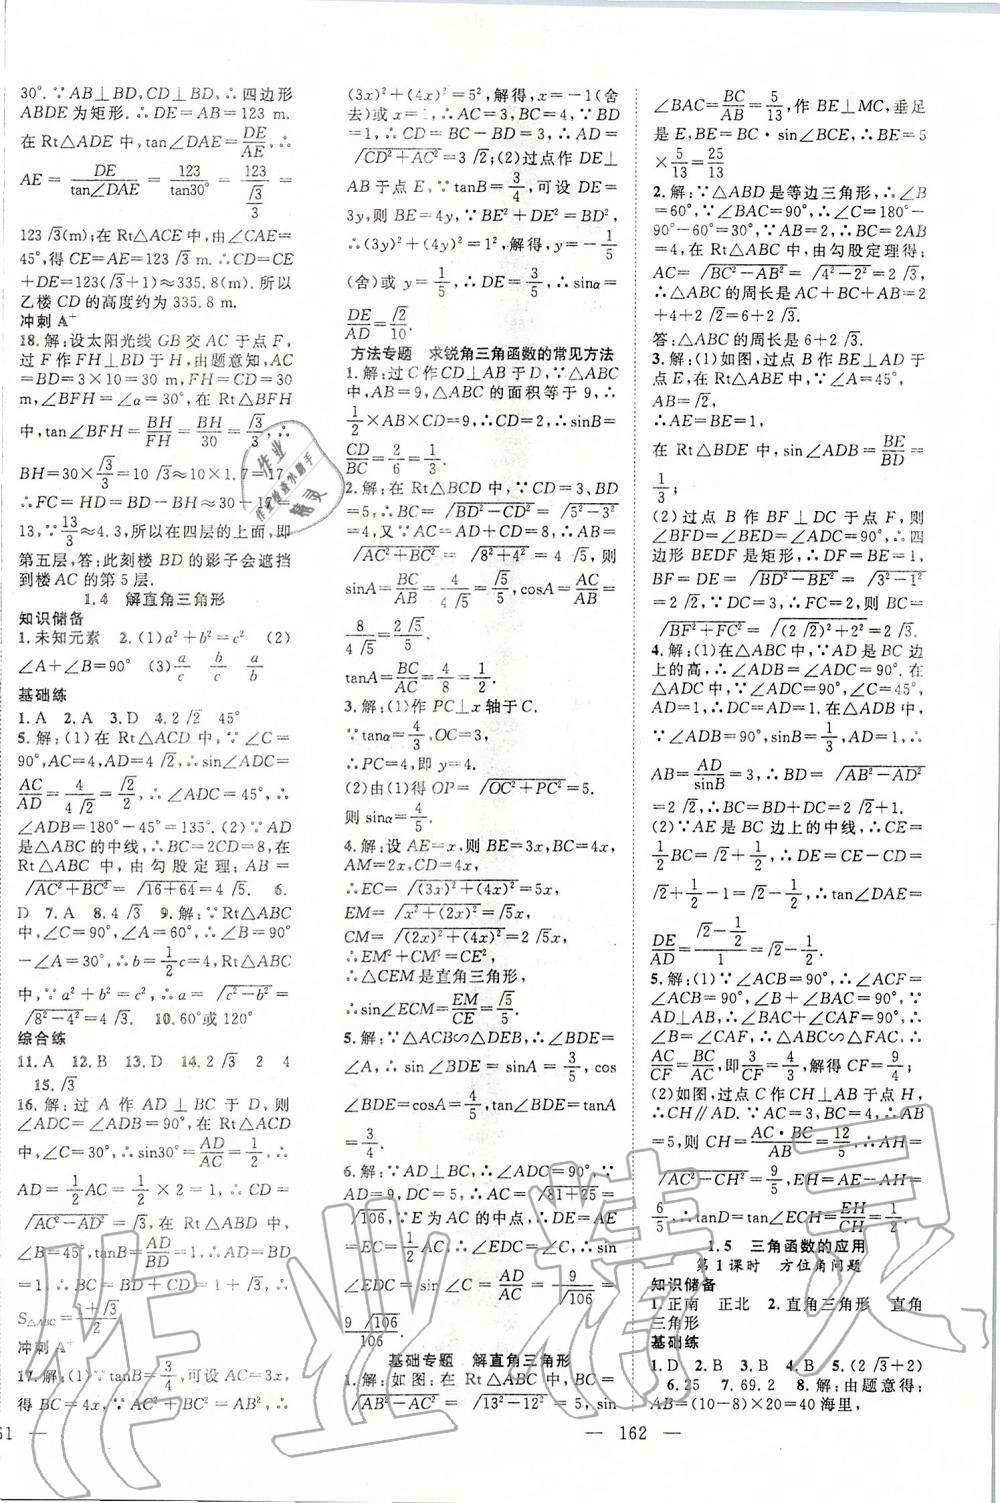 30°.∵AB⊥BD,CD⊥BD,∴四边形
ABDE为矩形.∴DE=AB=123 m.
在Rt△ADE中,tan∠DAE=DE/AE,∴
AE=DE/tan∠DAE=123/tan30°=123/(√3/3)=
123√3(m);在Rt△ACE中,由∠CAE=
45°,得CE=AE=123√3 m.∴CD=CE
+DE=123(√3+1)≈335.8(m).所以
乙楼CD的高度约为335.8 m.
冲刺A⁺
18.解:设太阳光线GB交AC于点F,
过F作FH⊥BD于H,由题意知,AC
=BD=3×10=30 m,FH=CD=30 m,
∠BFH=∠α=30°,在Rt△BFH
中,tan∠BFH=BH/FH=BH/30=√3/3,∴
BH=30×√3/3=10√3≈10×1.7=17,
∴FC=HD=BD-BH≈30-17=
13,∵13/3≈4.3,所以在四层的上面,即
第五层,答:此刻楼BD的影子会遮挡
到楼AC的第5层.
1.4 解直角三角形
知识储备
1.未知元素 2.(1)a²+b²=c² (2)
∠A+∠B=90° (3)a/c b/c a/b
基础练
1.A 2.A 3.D 4.2√2 45°
5.解:(1)在Rt△ACD中,∵∠C=
90°,AC=4,AD=4√2,∴sin∠ADC=
AC/AD=4/(4√2)=√2/2,∴∠ADC=45°;
∠ADB=180°-45°=135°.(2)∵AD
是△ABC的中线,∴BC=2CD=8,在
Rt△ABC中,由勾股定理:AB=
√(AC²+BC²)=√(16+64)=4√5. 6.
D 7.A 8.4√3 9.解:∵Rt△ABC
中,∠C=90°,∠A=60°,∴∠B=90°
-∠A=30°,∴b=1/2c=4,
∵a²+b²=c²,∴a=√(c²-b²)=
√(8²-4²)=4√3. 10.60°或120°
综合练
11.A 12.B 13.D 14.2√3 2 4
15.√3
16.解:过A作AD⊥BC于D,则
∠ADC=∠ADB=90°,在Rt△ADC
中,∠C=30°,∴sin30°=AD/AC=1/2,∴
AD=1/2AC=1/2×2=1,∴CD=
√(AC²-AD²)=√3,在Rt△ABD中,
∠B=45°,tanB=AD/BD=1,∴BD=AD
=1,∴BC=BD+CD=1+√3,∴
S△ABC=(1+√3)/2
冲刺A⁺
17.解:(1)∵tanB=3/4,可设AC=3x,
得BC=4x,∵AC²+BC²=AB²,∴
61 —
(3x)²+(4x)²=5²,解得,x=-1(舍
去)或x=1,∴AC=3,BC=4,∵BD
=1,∴CD=BC-BD=3,∴AD=
√(CD²+AC²)=3√2;(2)过点作DE⊥
AB于点E,∵tanB=3/4,可设DE=
3y,则BE=4y,∵BE²+DE²=BD²,
∴(3y)²+(4y)²=1²,解得,y=-1/5
(舍)或y=1/5,∴DE=3/5,∴sinα=
DE/AD=√2/10.
方法专题 求锐角三角函数的常见方法
1.解:过C作CD⊥AB于D,∵△ABC
中,AB=9,△ABC的面积等于9,∴
1/2×AB×CD=9,∴CD=2,∴sinB=
CD/BC=2/6=1/3.
2.解:在Rt△BCD中,∵CD=3、BD
=5,∴BC=√(BD²-CD²)=√(5²-3²)
=4,又∵AC=AD+CD=8,∴AB=
√(AC²+BC²)=√(8²+4²)=4√5,则
sinA=BC/AB=4/(4√5)=√5/5,cosA=AC/AB=
8/(4√5)=2√5/5,
tanA=BC/AC=4/8=1/2.
3.解:(1)作PC⊥x轴于C.
∵tanα=4/3,OC=3,
∴PC=4,即y=4.
(2)由(1)得OP=√(OC²+PC²)=5.
则sinα=4/5.
4.解:设AE=x,则BE=3x,BC=4x,
AM=2x,CD=4x,
∴EC=√((3x)²+(4x)²)=5x,
EM=√(x²+(2x)²)=√5x,
CM=√((2x)²+(4x)²)=2√5x,
∴EM²+CM²=CE²,
∴△CEM是直角三角形,
∴sin∠ECM=EM/CE=√5/5.
5.解:∵△ACB∽△DEB,∴∠BDE=
∠A,∴sin∠BDE=sinA=3/5,cos
∠BDE=cosA=4/5,tan∠BDE=tanA=
3/4.
6.解:∵AD⊥BC,∴∠ADC=90°,∵
AD=9,DC=5,∴AC=√(81+25)=
√106,∵E为AC的中点,∴DE=AE
=EC=1/2AC,∴∠EDC=∠C,∴sin
∠EDC=sin∠C=AD/AC=9/√106=
9√106/106.
基础专题 解直角三角形
1.解:如图:在Rt△ABC中,AC=
√(AB²-BC²)=√(13²-12²)=5,∴sin
— 162 —
∠BAC=BC/AB=5/13,作BE⊥MC,垂足
是E,BE=BC·sin∠BCE,∴BE=5
×5/13=25/13
2.解:∵△ABD是等边三角形,∴∠B
=60°,∵∠BAC=90°,∴∠C=180°-
90°-60°=30°,∵AB=2,∴BC=2AB
=4,在Rt△ABC中,由勾股定理得:
AC=√(BC²-AB²)=√(4²-2²)=2√3,
∴△ABC的周长是AC+BC+AB=2√3
+2+4=6+2√3.
答:△ABC的周长是6+2√3.
3.解:(1)如图,过点B作BE⊥AD于
点E,在Rt△ABE中,∵∠A=45°,
AB=√2,
∴AE=BE=1,
在Rt△BDE中,sin∠ADB=BE/BD=
1/3;
(2)过点B作BF⊥DC于点F,则
∠BFD=∠BED=∠ADC=90°,∴四
边形BEDF是矩形,∴DF=BE=1,
BF=DE=√(BD²-BE²)=√(3²-1²)
=2√2,∵DC=3,∴FC=2,则BC=
√(BF²+FC²)=√((2√2)²+2²)=2√3.
4.解:(1)在△ABC中,∵AD是BC边
上的高,∴∠ADB=∠ADC=90°.在
△ADC中,∵∠ADC=90°,∠C=45°,
AD=1,∴DC=AD=1.在△ADB中,
∵∠ADB=90°,sinB=1/3,AD=1,∴
AB=AD/sinB=3,∴BD=√(AB²-AD²)=
2√2,∴BC=BD+DC=2√2+1;
(2)∵AE是BC边上的中线,∴CE=
1/2BC=√2+1/2,∴DE=CE-CD=
√2+1/2-1=√2-1/2,∴tan∠DAE=
DE/AD=(√2-1/2)/1=√2-1/2.
5.解:(1)∵∠ACB=90°,∴∠ACF=
∠ACB=90°,∠B+∠BAC=90°,∵
AD⊥AB,∴∠BAC+∠CAF=90°,∴
∠B=∠CAF,∴△ABC∽△FAC,∴
AC/CF=BC/AC,即3/CF=4/3,解得CF=9/4;
(2)如图,过点C作CH⊥AB于点H,
∴CH∥AD.∵AC=3,BC=4,∴AB
=5,则CH=AC·BC/AB=12/5,∴AH=
√(AC²-CH²)=9/5,∴EH=AE-AH=
6/5,∴tanD=tan∠ECH=EH/CH=1/2.
1.5 三角函数的应用
第1课时 方位角问题
知识储备
1.正南 正北 2.直角三角形 直角
三角形
基础练
1.D 2.B 3.B 4.B 5.(2√3+2)
6.25 7.69.2 8.解:由题意得:
AB=(10-8)×20=40海里,
作业精灵